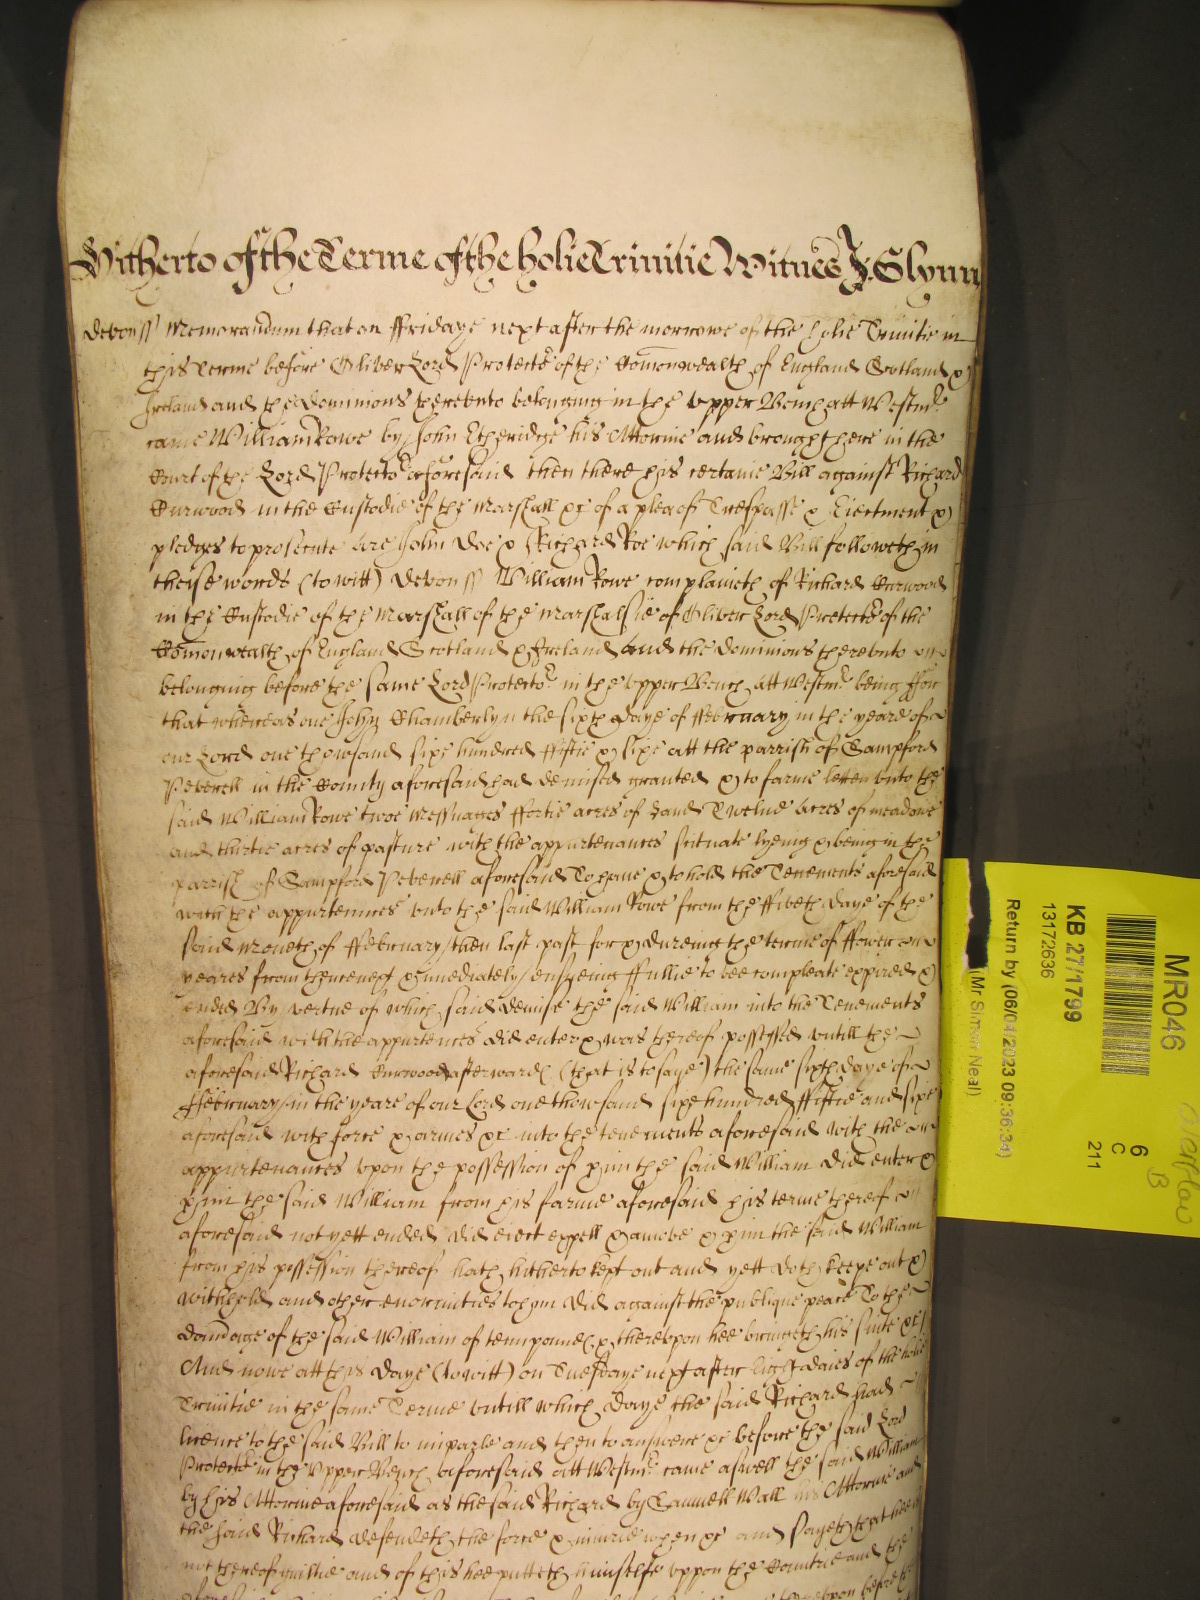 Hitherto of the Terme of the holie Trinitie Witnes J. Glynn
Devon ss Memorandum that on ffridaye next after the morrowe of the holie Trinitie in
this Terme before Oliver Lord Protector of the Comonwealth of England Scotland &
Ireland and the Dominions therevnto belonging in the vpper Bench att Westmr
came William Rowe by John Etheridge his Attornie and brought here in the
Court of the Lord Protector aforesaid then there his certaine Bill against Richard
Curwood in the Custodie of the Marshall &c of a plea of Trespasse & Eiectment &
pledges to prosecute are John Doe & Richard Roe which said Bill followeth in
theise words (to witt) Devon ss William Rowe complaineth of Richard Curwood
in the Custodie of the Marshall of the Marshalsie of Oliver Lord Protector of the
Comonwealth of England Scotland & Ireland and the Dominions therevnto
belonging before the same Lord Protector in the vpper Bench att Westmr being ffor
that whereas one John Chamberlyn the sixth daye of ffebruary in the yeare of
our Lord one thowsand sixe hundred ffiftie & sixe att the parrish of Sampford
Peverell in the County aforesaid had demised granted & to farme letten vnto the
said William Rowe twoe Messuages ffortie acres of Land Twelue acres of meadowe
and thirtie acres of pasture with the appurtenances scituate lyeing & being in the
parrish of Sampford Peverell aforesaid To haue & to hold the Tenements aforesaid
with the appurtennces vnto the said William Rowe from the ffiveth daye of the
said Moneth of ffebruary then last past for & dureing the terme of ffower
yeares from thencenext & imediately ensueing ffullie to bee compleate expired &
ended By vertue of which said demise the said William into the Tenements
aforesaid with the appurtences did enter & was thereof possessed vntill the
aforesaid Richard Curwood afterward (that is to saye) the same sixth daye of
ffebruary in the yeare of our Lord one thowsand sixe hundred ffiftie and sixe
aforesaid with force & armes &c into the tenements aforesaid with the
appurtenances vpon the possession of him the said William did enter &
him the said William from his farme aforesaid his terme thereof
aforesaid not yett ended did eiect expell & amove & him the said William
from his possession thereof hath hitherto kept out and yett doth keepe out &
withhold and other enormities to him did against the publique peace To the
damage of the said William of tenn pound & therevpon hee bringeth his suite &c
And nowe att this daye (to witt) on Tuesdaye next after eight daies of the holie
Trinitie in the same Terme vntill which daye the said Richard had
licence to the said Bill to imparle and then to answere &c before the said Lord
Protector in the Vpper Bench aforesaid att Westmr came aswell the said William
by his Attornie aforesaid as the said Richard by Samuell Wall his Attornie and
the said Richard defendeth the force & iniurie when &c and sayeth that hee is
not thereof guiltie and of this hee putteth himselfe vppon the Countrie and the
MR046
KB 27/1799
13172636
Return by (06/04/2023 09:36:34)
(Mr Simon Neal)
6
C
211
B